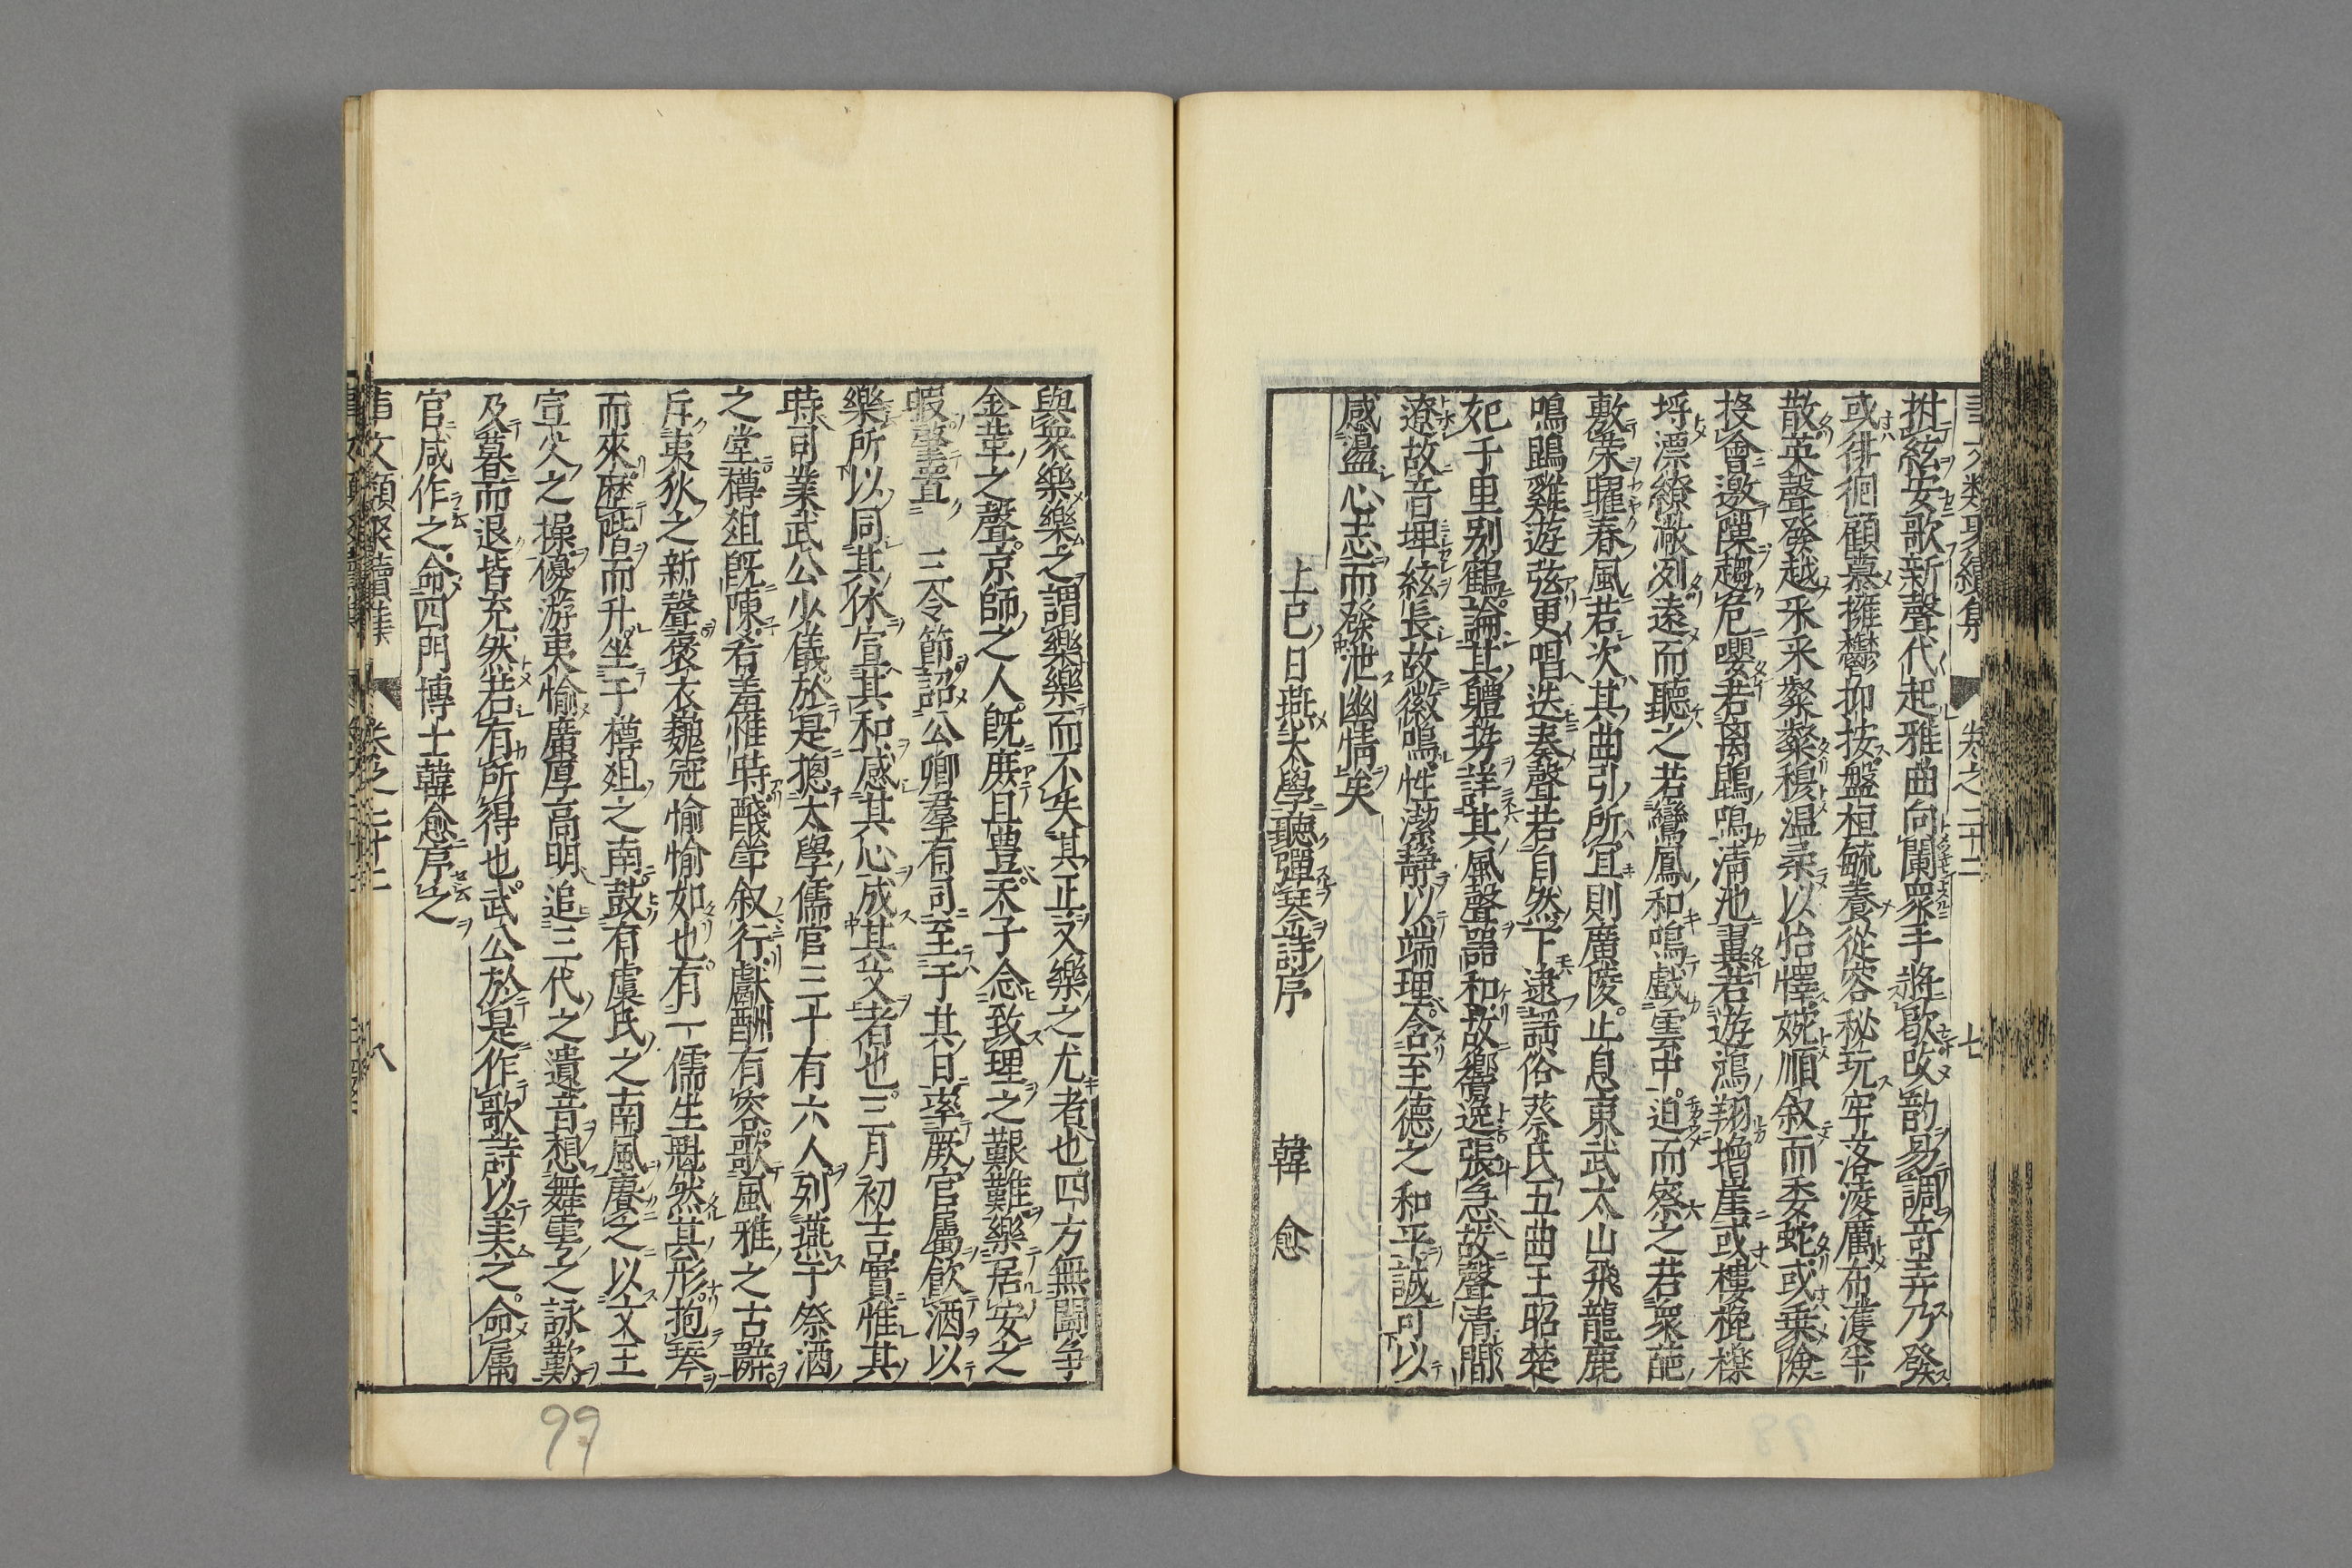 事文類聚續集 卷之二十二 七
拊絃安歌新聲代起雅曲向闌衆手將歇改韵易調奇弄乃發
或徘徊顧慕擁鬱抑按盤桓毓養從容秘玩牢落凌厲布濩半
散英聲發越采采粲粲穆温柔以怡懌婉順叙而委蛇或乗險
投會邀隙趨危嚶若離鵾鳴清池翼若遊鴻翔増崖或摟㧻櫟
埓漂繚潎冽遠而聽之若鸞鳳和鳴戲雲中迫而察之若衆葩
敷荣曜春風若次其曲引所宜則廣陵止息東武太山飛龍鹿
鳴鵾雞遊弦更唱迭奏聲若自然下逮謡俗蔡氏五曲王昭楚
妃千里别鶴論其軆勢詳其風聲噐和故響逸張急故聲清間
遼故音埤絃長故徽鳴性㓗静以端理含至德之和平誠可以
感盪心志而發泄幽情矣
上巳日燕太學聽彈琴詩序 韓愈
與衆樂樂之謂樂樂而不失其正又樂之尤者也四方無鬪争
金革之聲京師之人旣庶且豊天子念致理之艱難樂居安之
暇肇置 三令節詔公卿羣有司至于其日率厥官屬飮酒以
樂所以同其休宣其和感其心成其文者也三月初吉實惟其
時司業武公少儀於是揔太學儒官三十有六人列燕于祭酒
之堂樽俎旣陳肴羞惟時醆斝叙行獻酬有容歌風雅之古辭
斥夷狄之新聲褒衣巍冠愉愉如也有一儒生魁然其形抱琴
而來歴階而升坐于樽俎之南鼓有虞氏之南風賡之以文王
宣父之操優游夷愉廣厚高明追三代之遺音想舞雩之詠歎
及暮而退皆充然若有所得也武公於是作歌詩以美之命属
官咸作之命四門博士韓愈序之
事文類聚續集 卷之二十二 八
99